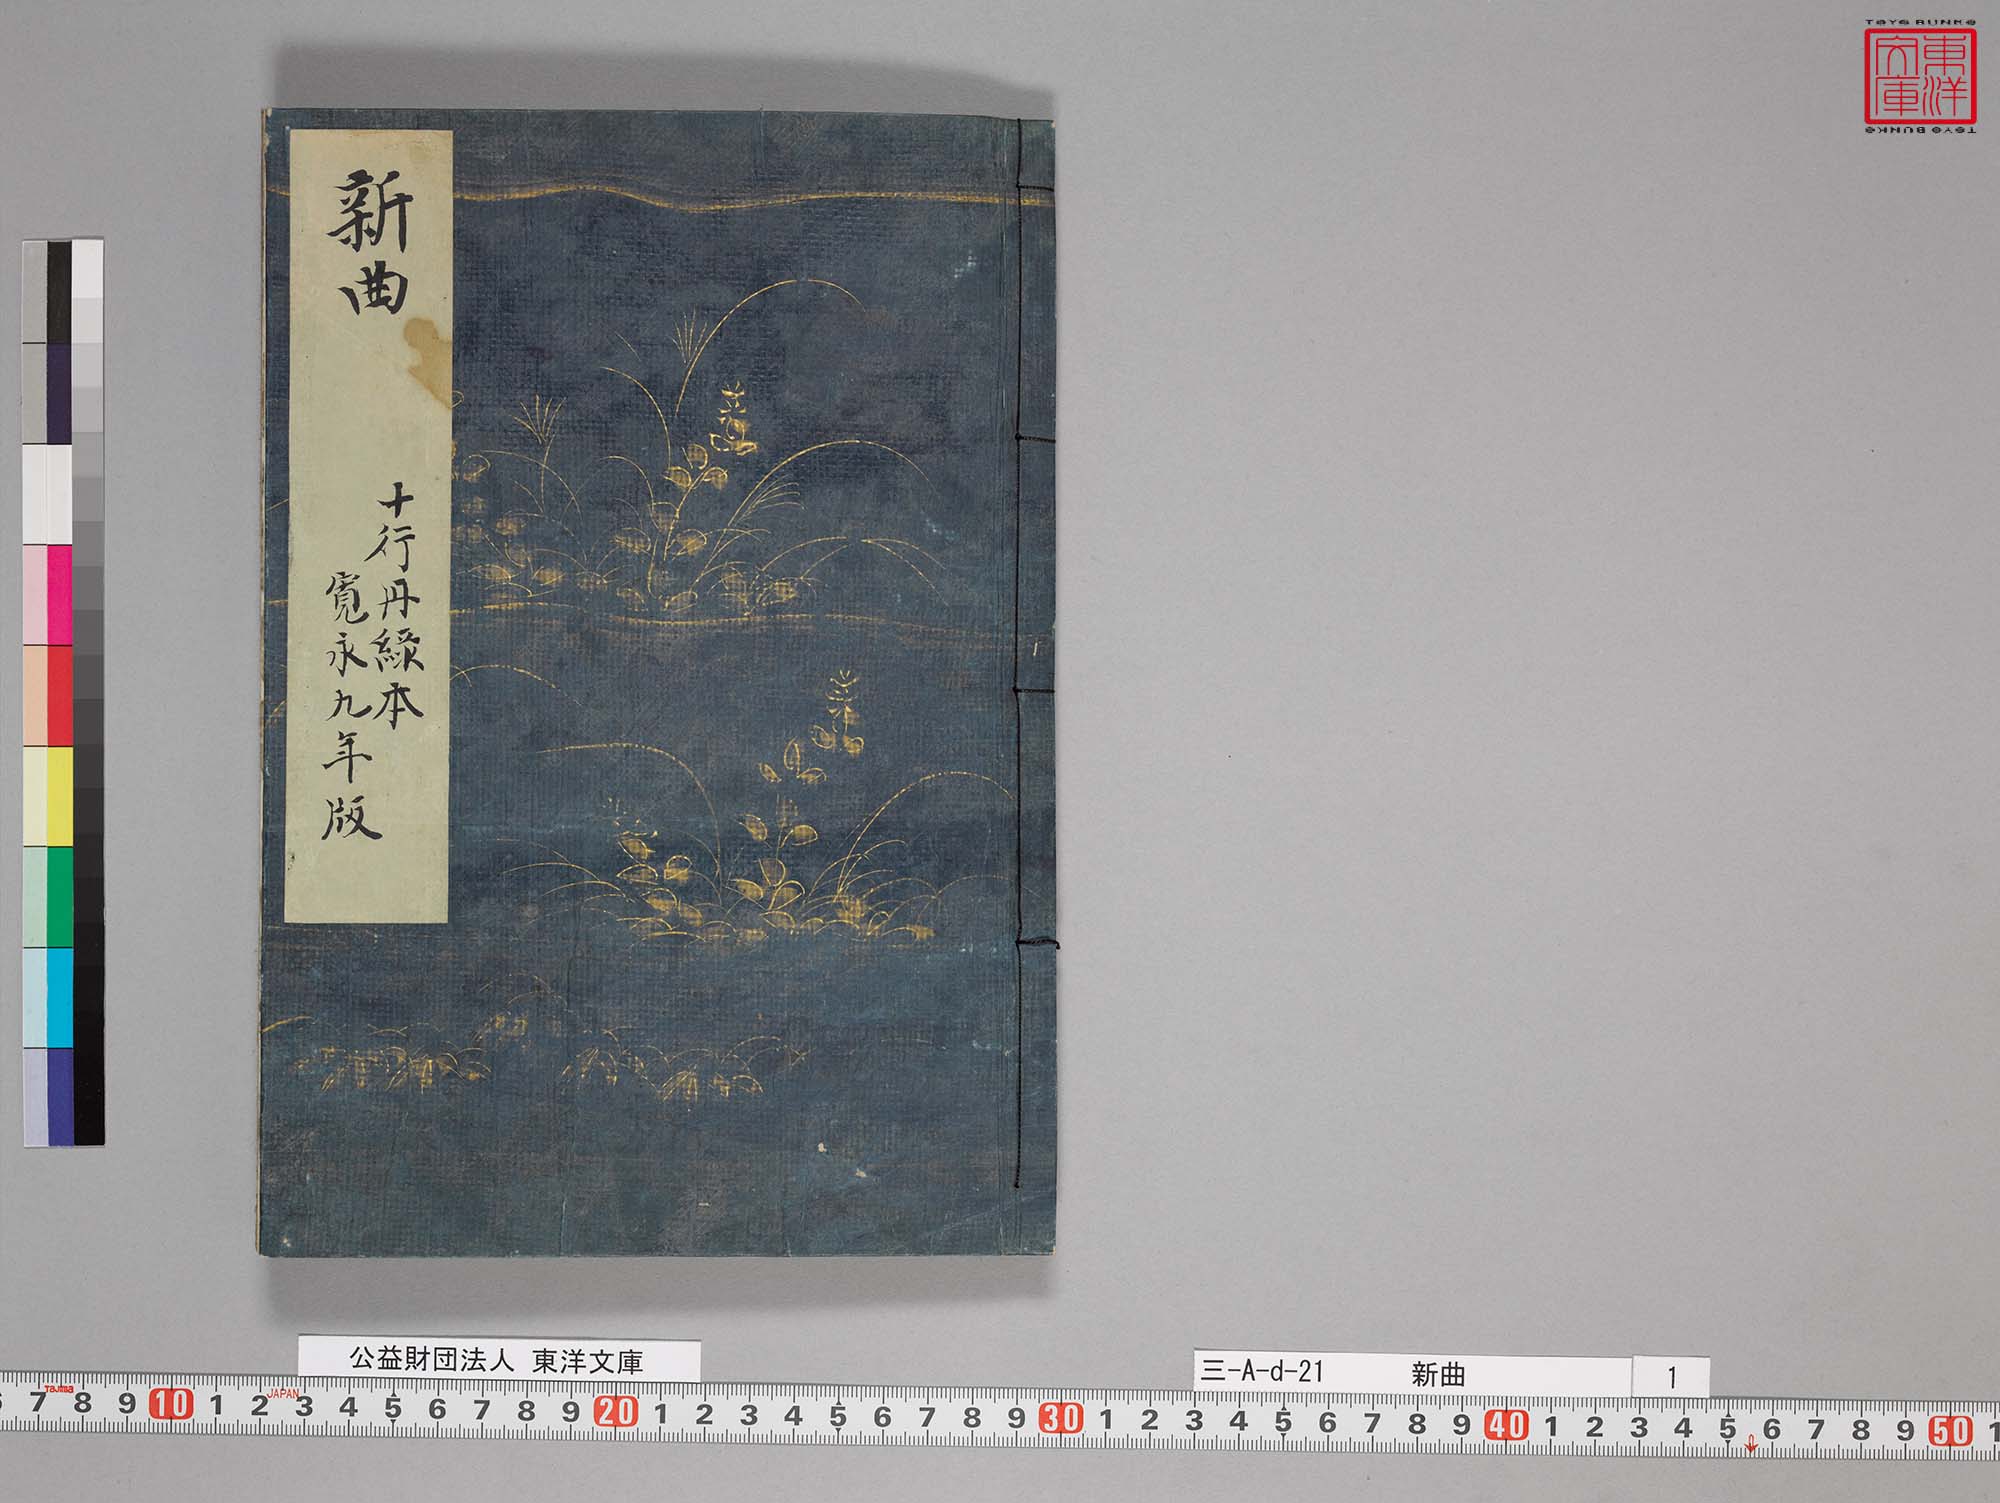 新曲
十行丹緑本
寛永九年版
TOYO BUNKO
東洋
文庫
TOYO BUNKO
公益財団法人 東洋文庫
三-A-d-21 新曲 1
7 8 9 10 1 2 3 4 5 6 7 8 9 20 1 2 3 4 5 6 7 8 9 30 1 2 3 4 5 6 7 8 9 40 1 2 3 4 5 6 7 8 9 50 1
Tajima
JAPAN